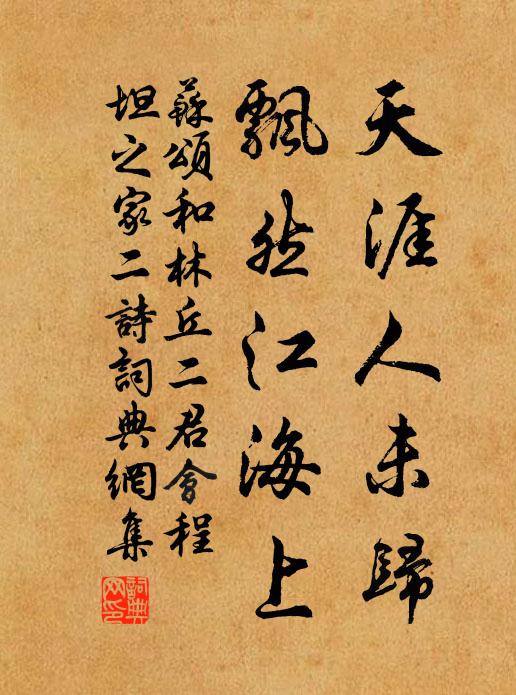 天涯人未歸
飄然江海上
蘇頌和林丘二君會程
坦之家二詩詞典網集
詞典网印